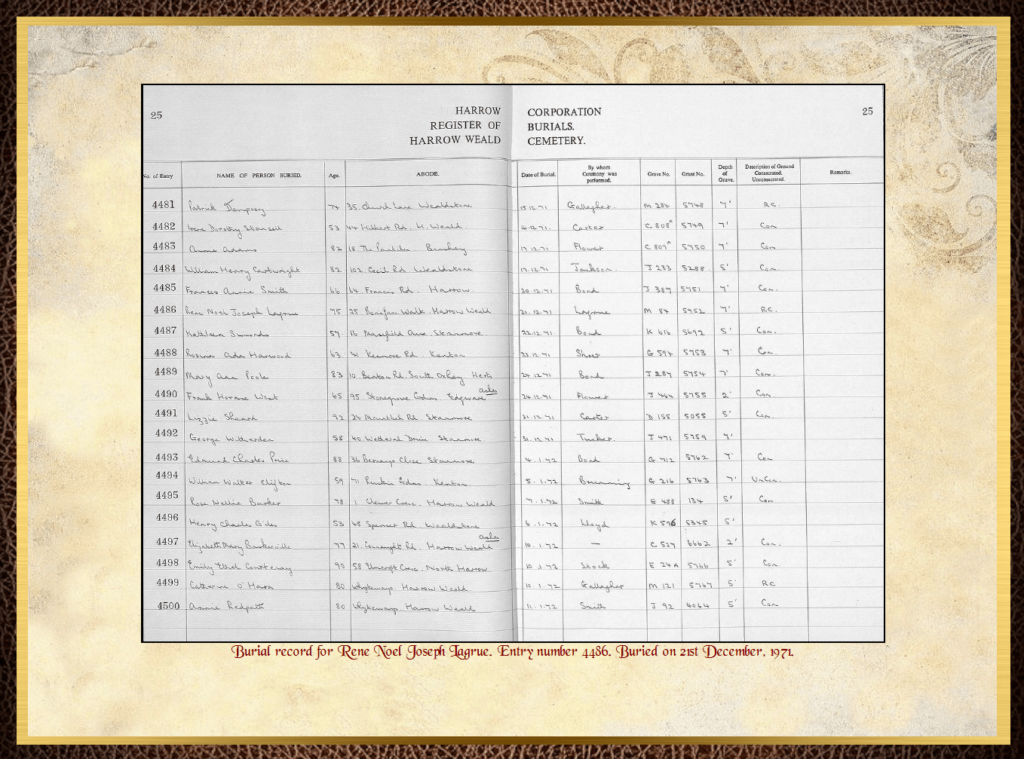 25 HARROW CORPORATION 25
REGISTER OF BURIALS.
HARROW WEALD CEMETERY.
No. of Entry NAME OF PERSON BURIED. Age. ABODE. Date of Burial. By whom Ceremony was performed. Grave No. Grant No. Depth of Grave. Description of Ground Consecrated. Unconsecrated. Remarks.
4481 Patrick Dempsey 74 35 Church Lane Wealdstone 12.71 Gallagher M 5748 7' R.C.
4482 Dorothy 53 44 Rd. H. Weald 12.71 Carter C 808 5749 7' Con
4483 Annie Adams 82 18 The Bushey 17.12.71 Flower C 807 5750 7' Con
4484 William Henry Cartwright 82 102 Cecil Rd Wealdstone 17.12.71 Jackson J 233 5288 5' Con
4485 Frances Annie Smith 66 64 Francis Rd. Harrow 20.12.71 Bond J 387 5751 7' Con
4486 Rene Noel Joseph Lagrue 75 25 Walk. Harrow Weald 21.12.71 M 84 5752 7' R.C.
4487 Kathleen 57 16 Ave. Stanmore 22.12.71 Bond K 616 5692 5' Con.
4488 Ada Harwood 63 41 Kenmore Rd. Kenton 23.12.71 G 594 5753 7' Con
4489 Mary Ann Poole 83 10 Rd. South Oxhey Herts 24.12.71 Bond J 287 5754 7' Con.
4490 Frank Horace West 65 95 Stonegrove Gdns. Edgware ashes 24.12.71 Flower J 5755 2' Con.
4491 Lizzie Sheard 92 Rd. Stanmore 31.12.71 Carter D 155 5055 5' Con.
4492 George 58 40 Wetheral Drive Stanmore 31.12.71 Tucker J 471 5759 7'
4493 Edward Charles Price 88 36 Bernays Close Stanmore 4.1.72 Bond G 712 5762 7' Con
4494 William Walter 59 71 Gdns. Kenton 5.1.72 Browning G 216 5763 7' UnCon.
4495 Rose Nellie Barker 78 1 Cres. Harrow Weald 7.1.72 Smith E 488 134 5' Con
4496 Henry Charles 53 48 Spencer Rd. Wealdstone 6.1.72 Lloyd K 596 5345 5'
4497 Elizabeth Mary Baskerville 77 21 Connaught Rd. Harrow Weald ashes 10.1.72 — C 527 6662 2' Con.
4498 Emily Ethel Courtenay 90 58 Cres. North Harrow 10.1.72 Stock E 24A 5766 5' Con.
4499 Catherine O'Hara 80 Harrow Weald 11.1.72 Gallagher M 121 5767 5' R.C
4500 Annie Redpath 80 Harrow Weald 11.1.72 Smith J 92 4064 5' Con
Burial record for Rene Noel Joseph Lagrue. Entry number 4486. Buried on 21st December, 1971.